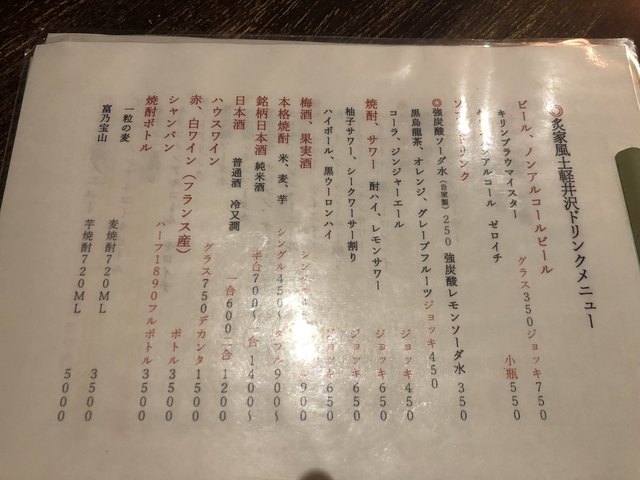 ◎炙家風土軽井沢ドリンクメニュー
ビール、ノンアルコールビール グラス350 ジョッキ750
キリンブラウマイスター
ノンアルコール ゼロイチ 小瓶550
ソフトドリンク
◎強炭酸ソーダ水(自家製)250 強炭酸レモンソーダ水 350
黒烏龍茶、オレンジ、グレープフルーツ ジョッキ450
コーラ、ジンジャーエール ジョッキ450
焼酎、サワー 酎ハイ、レモンサワー ジョッキ650
柚子サワー、シークワーサー割り ジョッキ650
ハイボール、黒ウーロンハイ ジョッキ650
梅酒、果実酒
本格焼酎 米、麦、芋 シングル450〜 900〜
銘柄日本酒 純米酒 半合700〜 一合 1400〜
日本酒 普通酒 冷又潤 一合600 二合 1200
ハウスワイン グラス750 デカンタ1500
赤、白ワイン(フランス産) ボトル3500
シャンパン ハーフ1890 フルボトル3500
焼酎ボトル
一粒の麦 麦焼酎720ML 3500
富乃宝山 芋焼酎720ML 5000